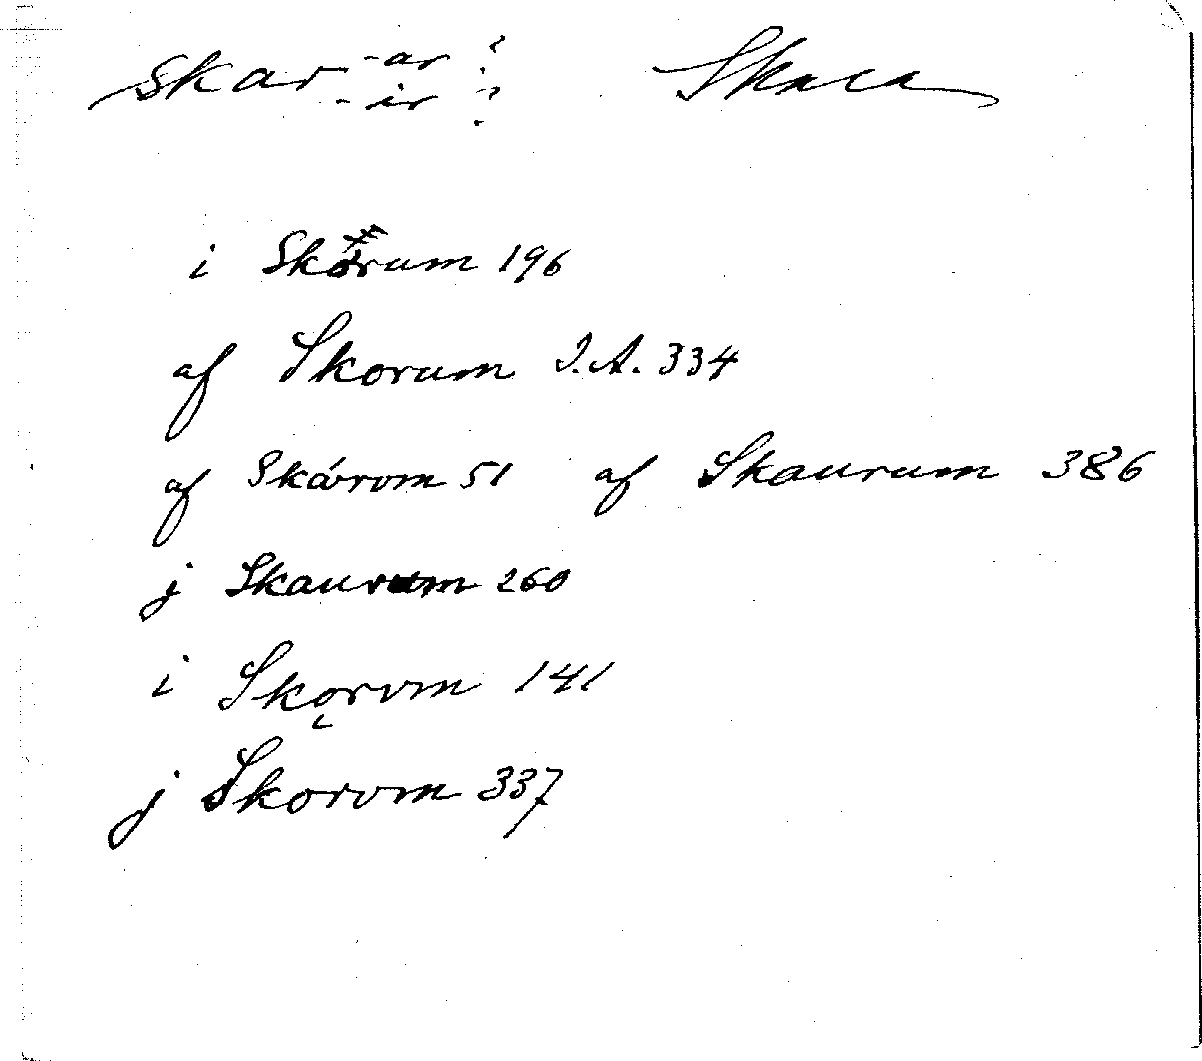 Skar -ar ? Skara
-ir ?
i Skørum 196
af Skorum I.A. 334
af Skávrom 51 af Skaurum 386
j Skaurum 260
i Skǫrvm 141
j Skorvm 337